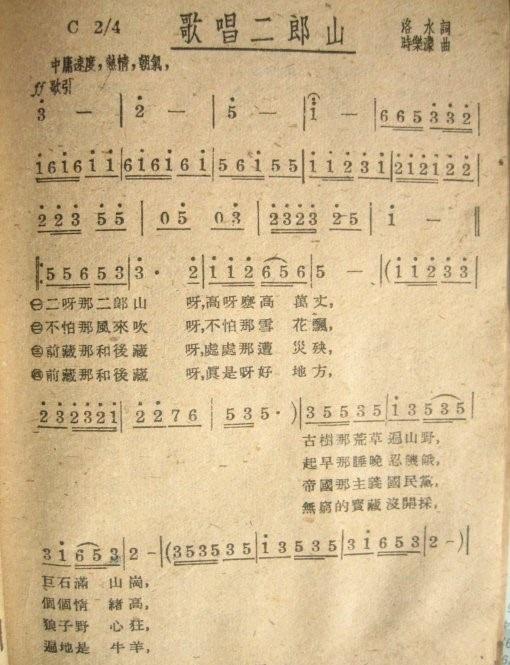 C 2/4 歌唱二郎山 洛水詞
時樂濛曲
中庸速度,熱情,朝氣,
ff 歌引
3 — | 2 — | 5 — | 1 — | 6 6 5 3 3 2 |
1 6 1 6 1 1 | 6 1 6 1 6 1 | 5 6 1 5 5 | 1 1 2 3 1 | 2 1 2 1 2 2 |
2 2 3 5 5 | 0 5 0 3 | 2 3 2 3 2 5 | 1 — ‖
5 5 6 5 3 | 3 · 2 | 1 1 2 6 5 6 | 5 — | (1 1 2 3 3 |
㊀二呀那二郎山 呀,高呀麽高 萬丈,
㊁不怕那風來吹 呀,不怕那雪 花飄,
㊂前藏那和後藏 呀,處處那遭 災殃,
㊃前藏那和後藏 呀,眞是呀好 地方,
2 3 2 3 2 1 | 2 2 7 6 | 5 3 5 · ) | 3 5 5 3 5 | 1 3 5 3 5 |
古樹那荒草 遍山野,
起早那睡晚 忍饑餓,
帝國那主義 國民黨,
無窮的寶藏 沒開採,
3 1 6 5 3 | 2 - | (3 5 3 5 3 5 | 1 3 5 3 5 | 3 1 6 5 3 | 2 - ) |
巨石滿 山崗,
個個情 緒高,
狼子野 心狂,
遍地是 牛羊,